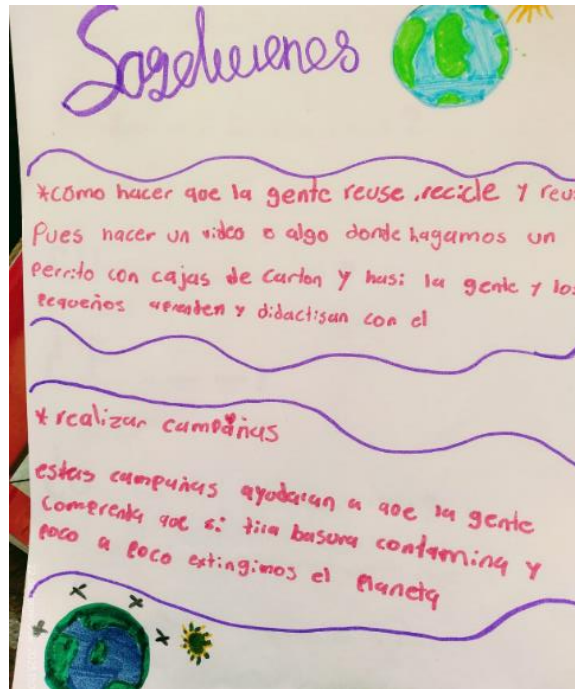 *como hacer que la gente reuse, recicle y reu
Pues hacer un video o algo donde hagamos un
perrito con cajas de carton y hasi la gente y los
pequeños aprenden y didactisan con el
*realizar campañas
estas campañas ayudaran a que la gente
comprenta que si tira basura contamina y
poco a poco extingimos el planeta